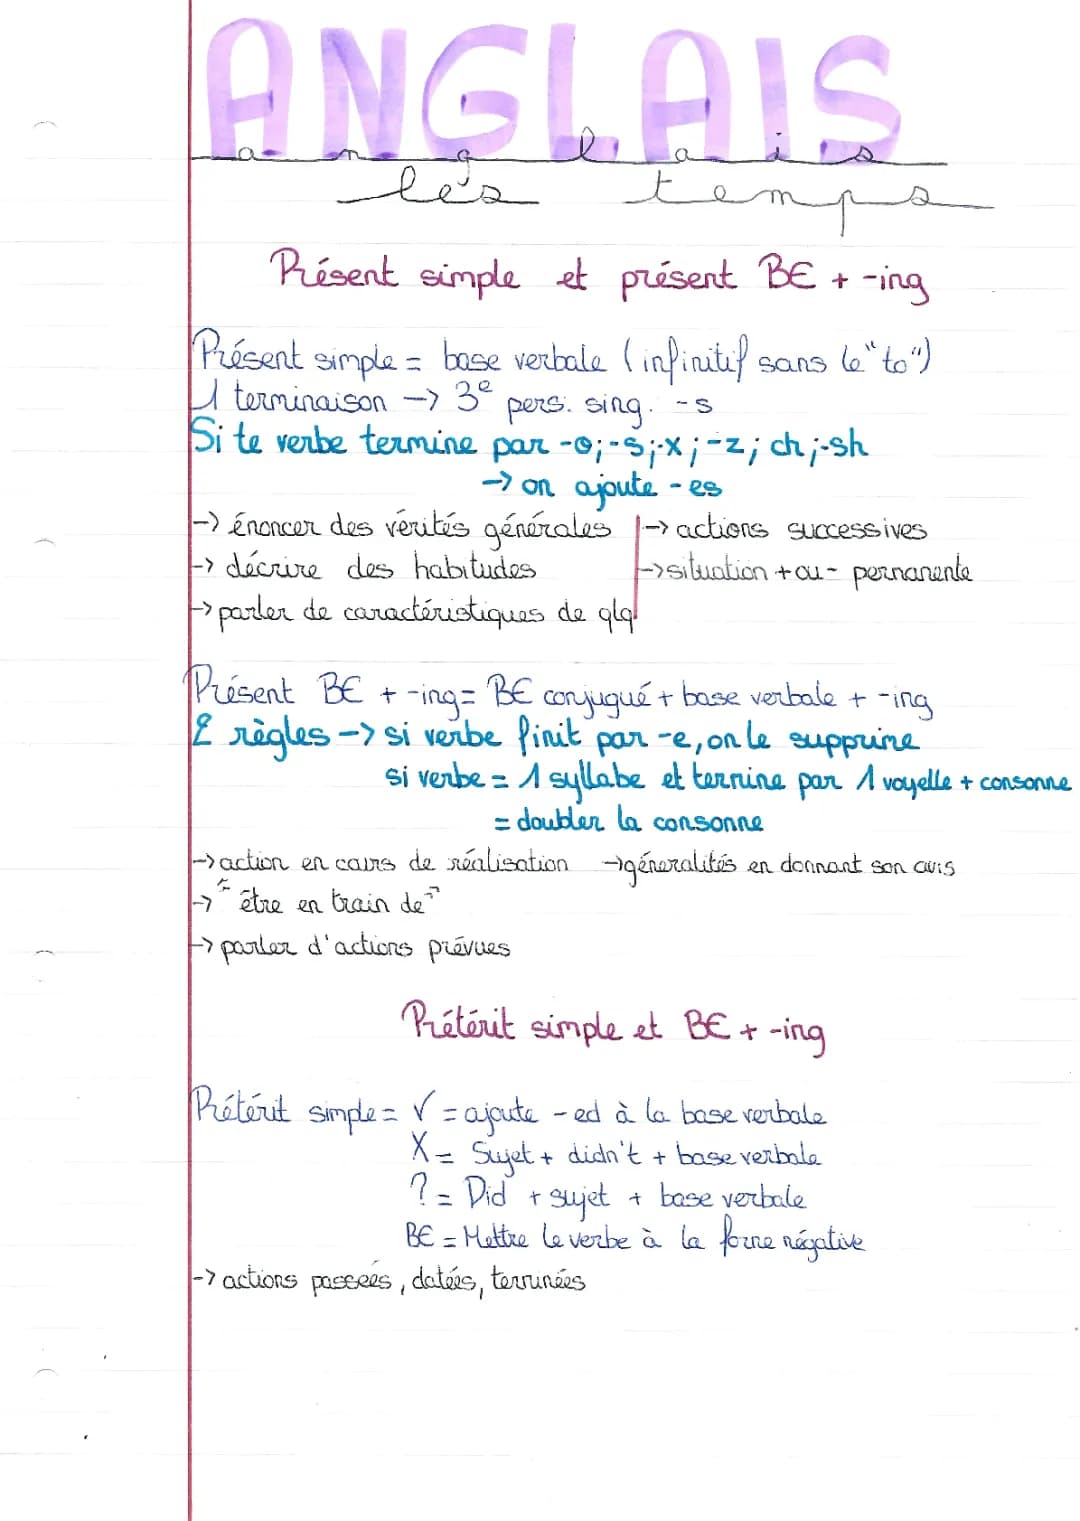 ANGLAIS
anglais
les temps
Présent simple et présent BE + -ing
Présent simple = base verbale (infinitif sans le "to")
1 terminaison -> 3e pers. sing. -s
Si te verbe termine par -o;-s;-x;-z; ch;-sh
-> on ajoute -es
-> énoncer des vérités générales
-> décrire des habitudes
-> parler de caractéristiques de qlq
-> actions successives
-> situation + ou - permanente
Présent BE + -ing = BE conjugué + base verbale + -ing
2 règles -> si verbe finit par -e, on le supprime
si verbe = 1 syllabe et termine par 1 voyelle + consonne
= doubler la consonne
-> action en cours de réalisation -> généralités en donnant son avis
-> "être en train de"
-> parler d'actions prévues
Prétérit simple et BE + -ing
Prétérit simple = √ = ajoute -ed à la base verbale
X = Sujet + didn't + base verbale
? = Did + sujet + base verbale
BE = Mettre le verbe à la forme négative
-> actions passées, datées, terminées